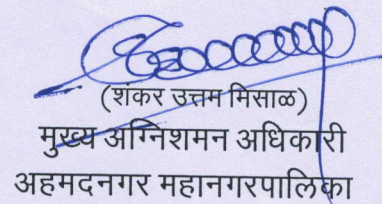 (शंकर उत्तम मिसाळ)
मुख्य अग्निशमन अधिकारी
अहमदनगर महानगरपालिका